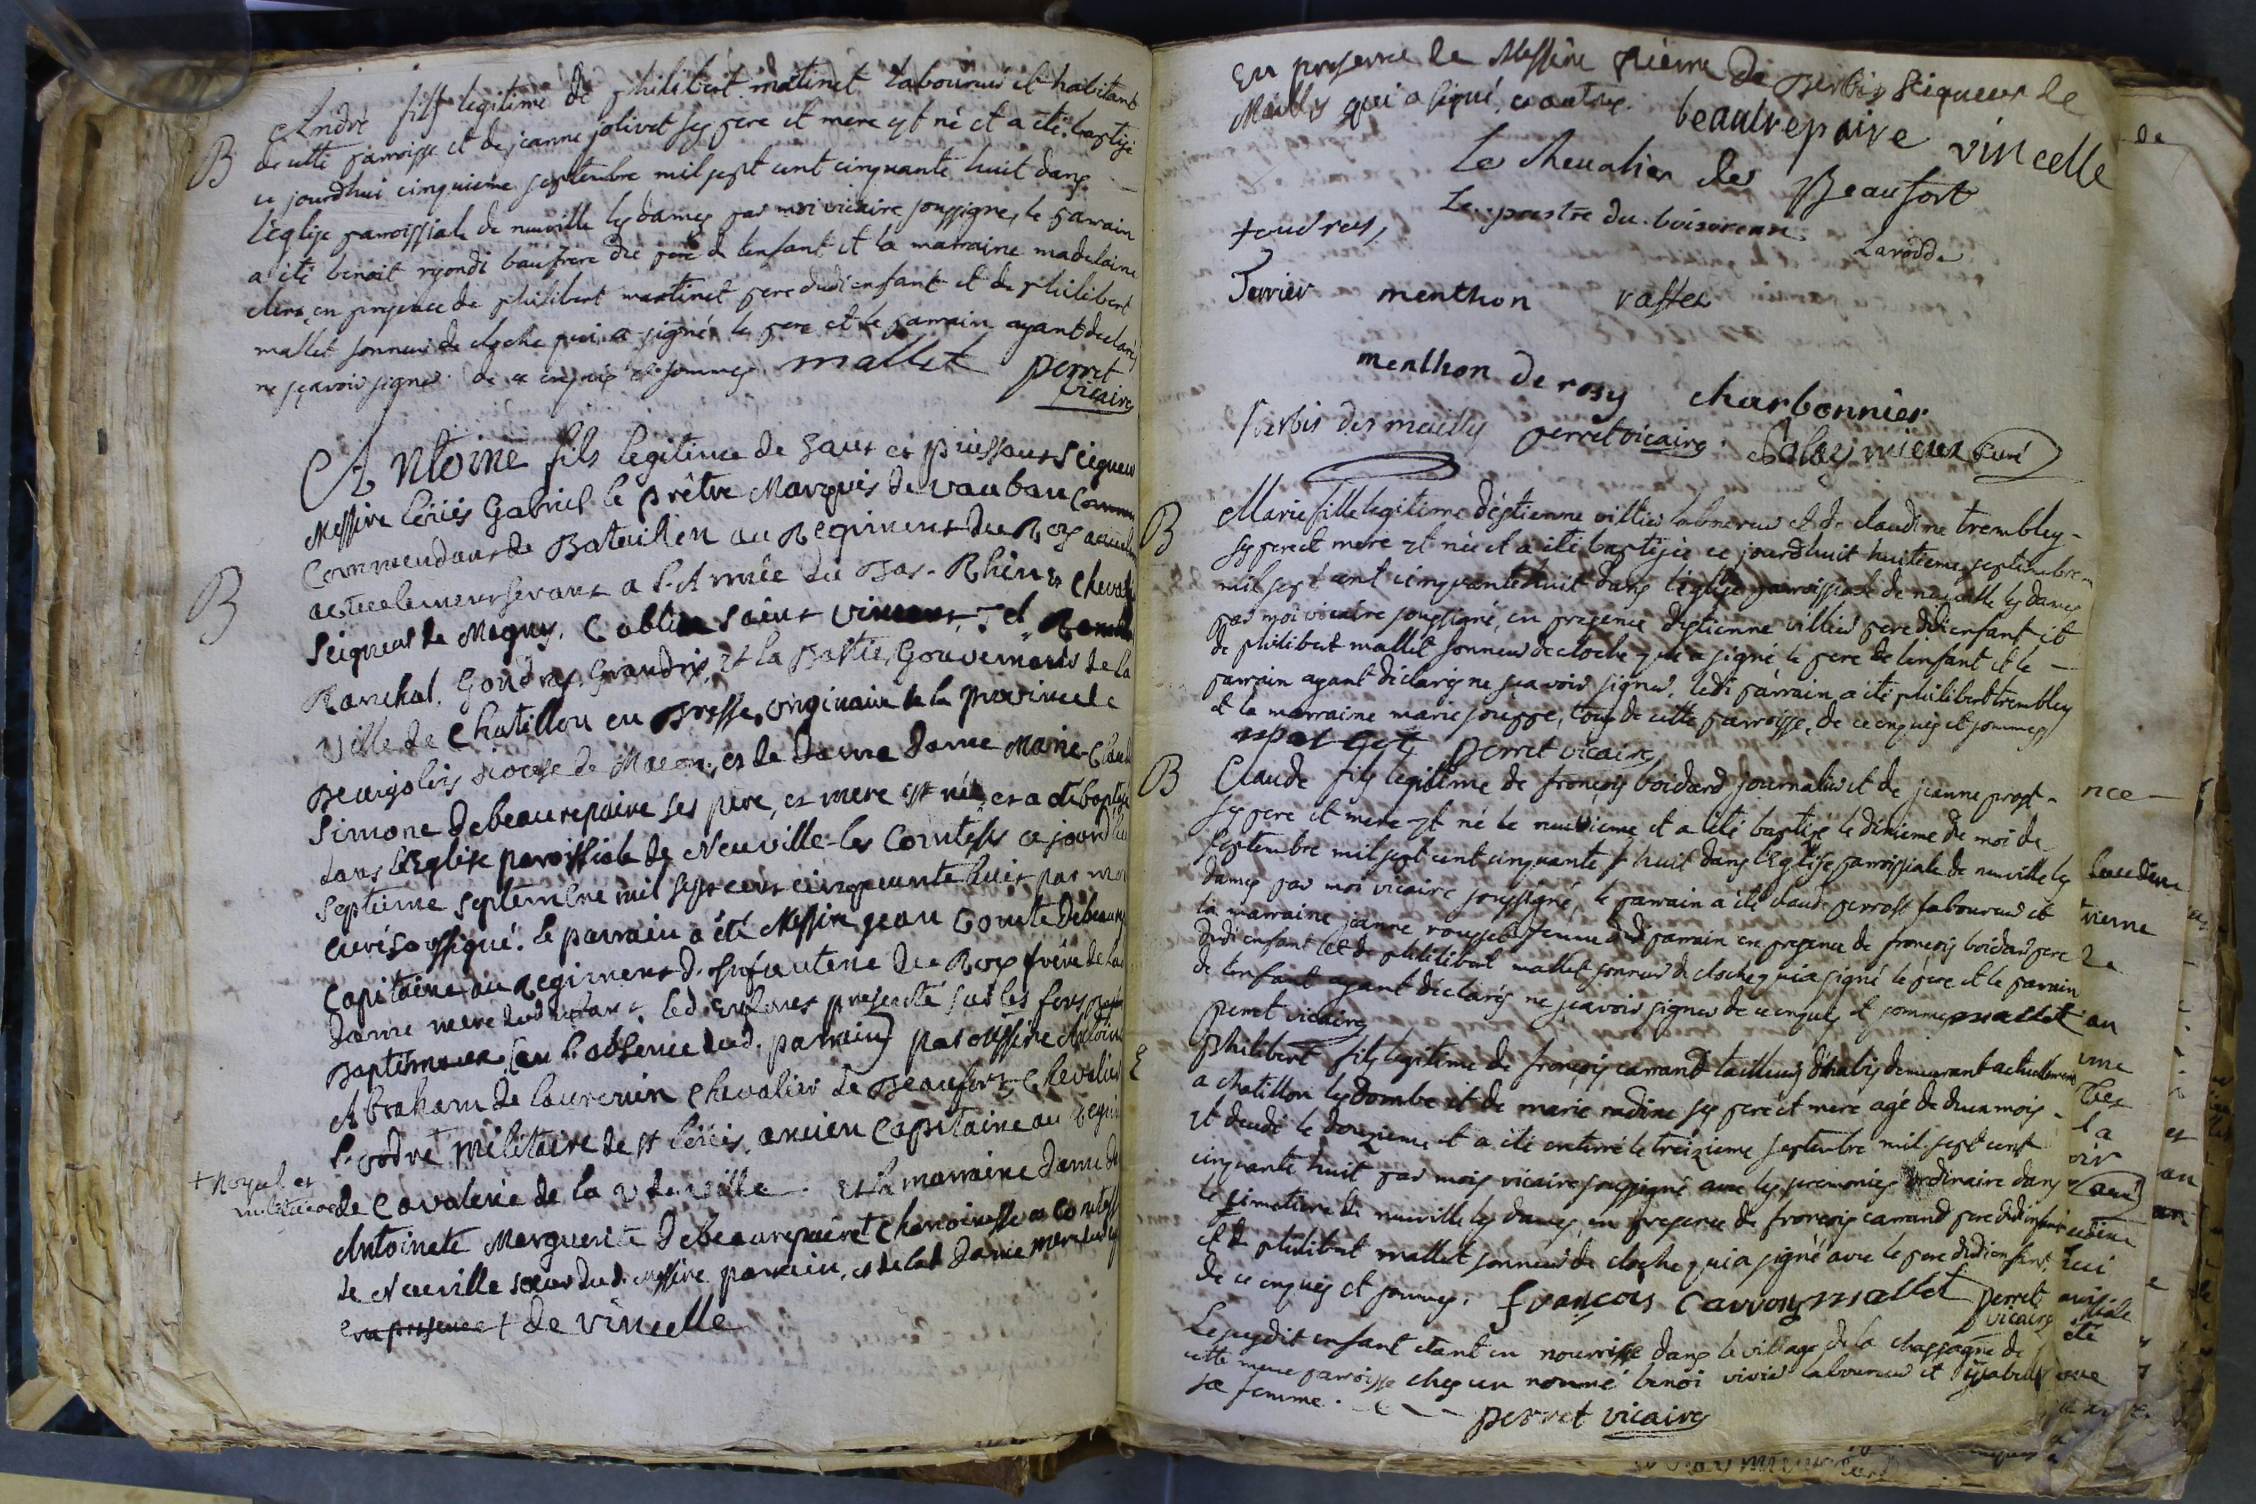 B
André fils legitime de philibert matinet laboureur et habitant
de cette parroisse et de jeanne jolivet ses pere et mere est né et a été baptisé
ce jourdhui cinquieme septembre mil sept cent cinquante huit dans
l'eglise parroissiale de neuville les dames par moi vicaire soussigné, le parrain
a été benoit ryondi baufrere du pere de l'enfant et la marraine madelaine
clere, en presence de philibert martinet pere dudi enfant et de philibert
mallet sonneur de cloche qui a signé le pere et le parrain ayant declarés
ne sçavoir signer de ce enquis et sommes mallet perret
vicaire
B
Antoine fils legitime de haut et puissant seigneur
Messire Loüis Gabriel le prêtre Marquis de vauban
Commendant de Bataillen au Regiment du Roy
actuelement servant a l'Armée du Bas-Rhin et Chevalier
Seigneur de Magny, saint vincent, et
Ranchal, Goudras, Grandris, et la Bastie, Gouverneur de la
Ville de Chatillon en Bresse, originaire de la province de
Beaujolois diocese de Macon, et de dame dame Marie-Claude
Simone de beaurepaire ses pere, et mere est né, et a été baptisé
dans l'Eglise paroissiale de Neuville-les Comtesses ce jourdhui
septieme septembre mil sept cent cinquante huit par moi
curé soussigné. le parrain a été Messire jean Comte de beaurepaire
Capitaine au Regiment d'infanterie du Roy frére de la
dame mere dud enfant, led. enfant presenté sur les fons
Baptismaux (en l'absence dud. parrain) par Messire Antoine
Abraham de laurencin chevalier de Beaufort chevalier
l'ordre militaire de st Loüis, ancien Capitaine au Regiment
+ Royal et
militaire
de Cavalerie de la v de ville. et la marraine dame de
Antoinete Marguerite de beaurepaire + chanoinesse et Comtesse
de Neuville soeur dud. Messire parrain, et de lad. dame mere
en presence + de vincelle
En presence de Messire Pierre de Berbis Seigneur de
Mailly qui a signé, et autres. beaurepaire vincelle
Le chevalier de Beaufort
Le prestre du boisvernan
foudras, Larodde
Terrier menthon vallier
menthon de rosy charbonnier
Berbis des mailly perret vicaire Curé
B
Marie fille legitime d'estienne villier laboureur et de claudine trembley
ses pere et mere est née et a été baptisée ce jourdhuit huitieme septembre
mil sept cent cinquante huit dans l'eglise parroissiale de neuville les dames
par moi vicaire soussigné, en presence d'estienne villier pere dudi enfant et
de philibert mallet sonneur de cloche qui a signé le pere de l'enfant et le
parrain ayant déclarés ne sçavoir signer, ledi parrain a été philibert trembley
et la marraine marie jouffe, tous de cette parroisse, de ce enquis et sommes
perret vicaire
B
Claude fils legitime de françois boidard journalier et de jeanne prost
ses pere et mere est né le neuvieme et a été baptisé le dixieme du moi de
septembre mil sept cent cinquante huit dans l'eglise parroissiale de neuville les
dames par moi vicaire soussigné, le parrain a été claude perrost laboureur et
la marraine janne rousset femme dudi parrain en presence de françois boidard pere
dudi enfant et de philibert mallet sonneur de cloche qui a signé le pere et le parrain
de l'enfant ayant declarés ne sçavoir signer de ce enquis et sommes mallet
perret vicaire
E
philibert fils legitime de françois carrand tailleur d'habis demeurant actuellement
a chatillon les dombe et de marie radine ses pere et mere agé de deux mois
est decedé le douzieme et a été enterré le treizieme septembre mil sept cent
cinquante huit par mois vicaire soussigné avec les ceremonies ordinaire dans
le cimetiere de neuville les dames, en presence de françois carrand pere dudi enfant
et de philibert mallet sonneur de cloche qui a signé avec le pere dudi enfant
de ce enquis et sommes. françois Carron mallet perret
vicaire
Le susdit enfant étant en nourrisse dans le village de la chassagne de
cette meme parroisse ches un nommé benoi vivier laboureur et ysabelle
sa femme. perret vicaire